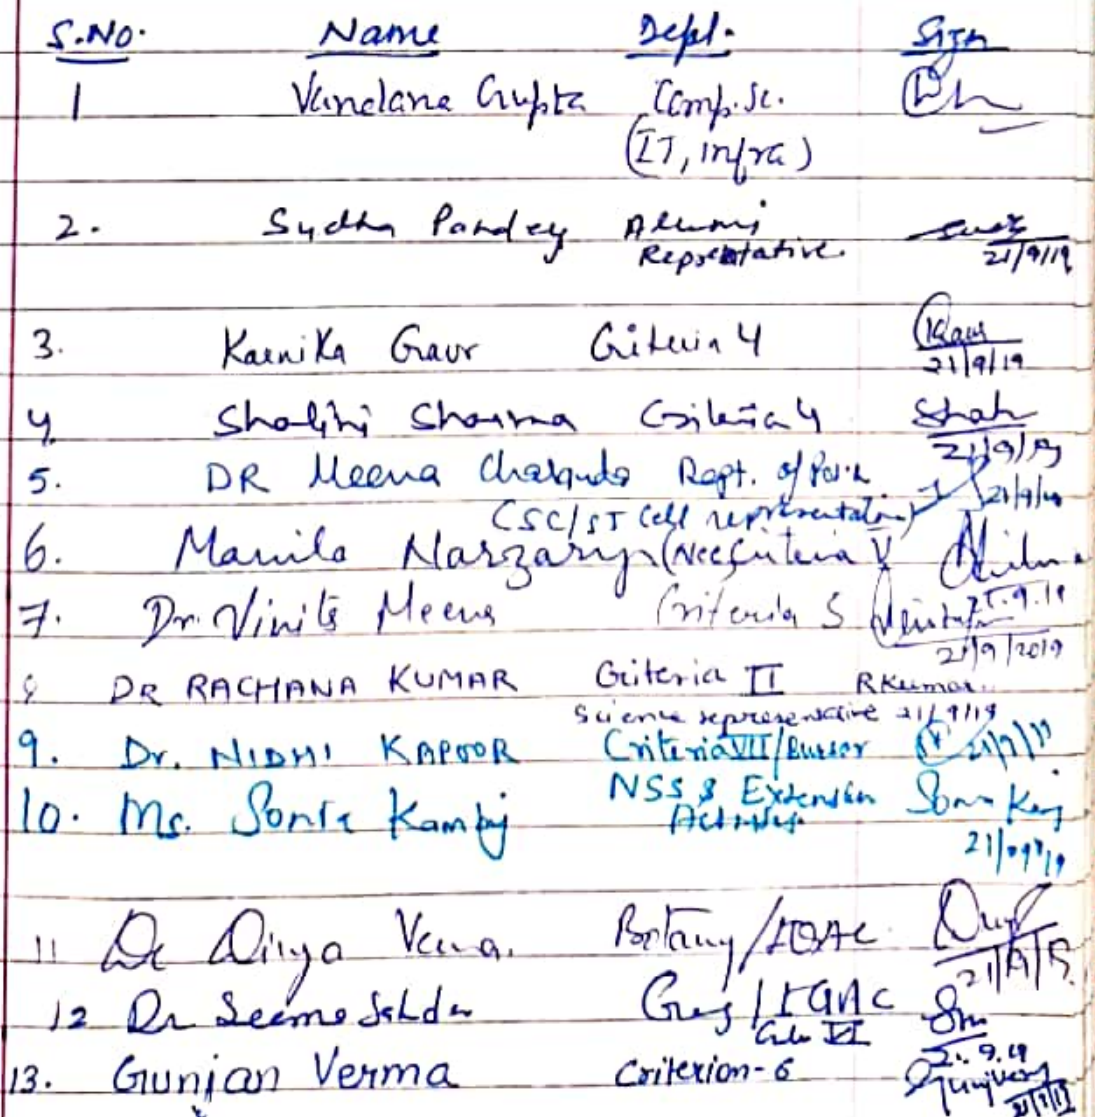 S.NO. Name Deptt. Sign
1 Vandana Gupta Comp.Sc.
(IT, infra)
2. Sudha Pandey Alumni
Representative. 21/9/19
3. Karnika Gaur Criteria 4 KGaur
21/9/19
4. Shalini Sharma Criteria 4
21/9/19
5. DR Meena Charanda Dept. of
(SC/ST Cell representation) 21/9/19
6. Manila Narzary Criteria V
21.9.19
7. Dr. Vinita Meena Criteria 5
21/9/2019
8 DR RACHANA KUMAR Criteria II RKumar
Science representative 21/9/19
9. Dr. NIDHI KAPOOR Criteria VII/Bursar 21/9/19
10. Ms. Sonia Kamboj NSS & Extension
Activities. 21/09/19
11 Dr Divya Verma. Botany/IQAC
21/9/19
12 Dr Seema /IQAC
VI 21.9.19
13. Gunjan Verma Criterion-6
21/9/19